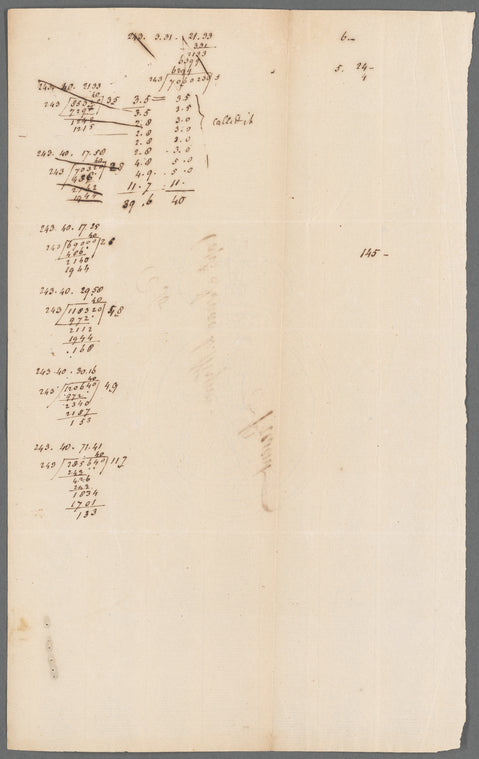 243. 3.31. 21.33
331
2133
6399
6399
243 / 7060235
243. 40. 2133
40
243 / 85320 / 35
729
1242
1215
243. 40. 17.58
40
243 / 70320 / 28
486
1944
3.5 = 3.5
3.5 3.5
2.8 3.0
2.8 3.0
2.8 3.0
2.8 3.0
4.8 5.0
4.9 5.0
11.7 11.
39.6 40
Called it
243. 40. 17.25
40
243 / 69000 / 28
486
2140
1944
243. 40. 29.58
40
243 / 118320 / 48
972
2112
1944
168
243. 40. 30.16
40
243 / 120640 / 49
972
2340
2187
153
243. 40. 71.41
40
243 / 285640 / 117
243
426
243
1834
1701
133
6 -
5. 24 -
4
145 -